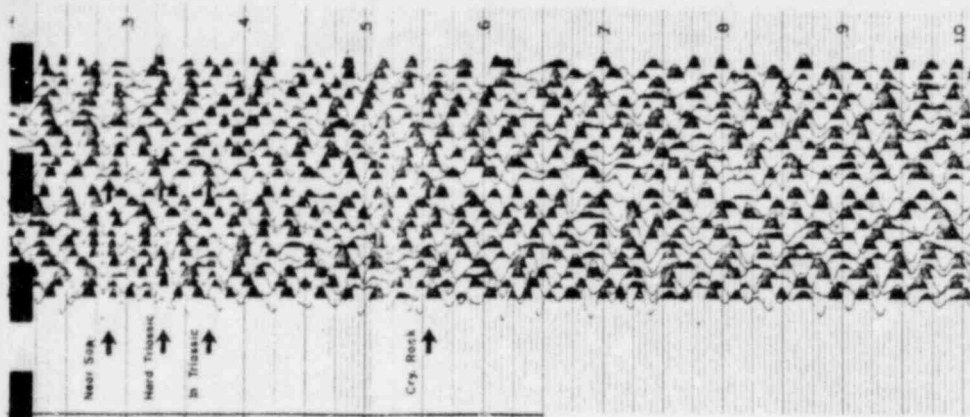 .3
.4
.5
.6
.7
.8
.9
1.0
Near Sap
Hard Triassic
In Triassic
Cry. Rock